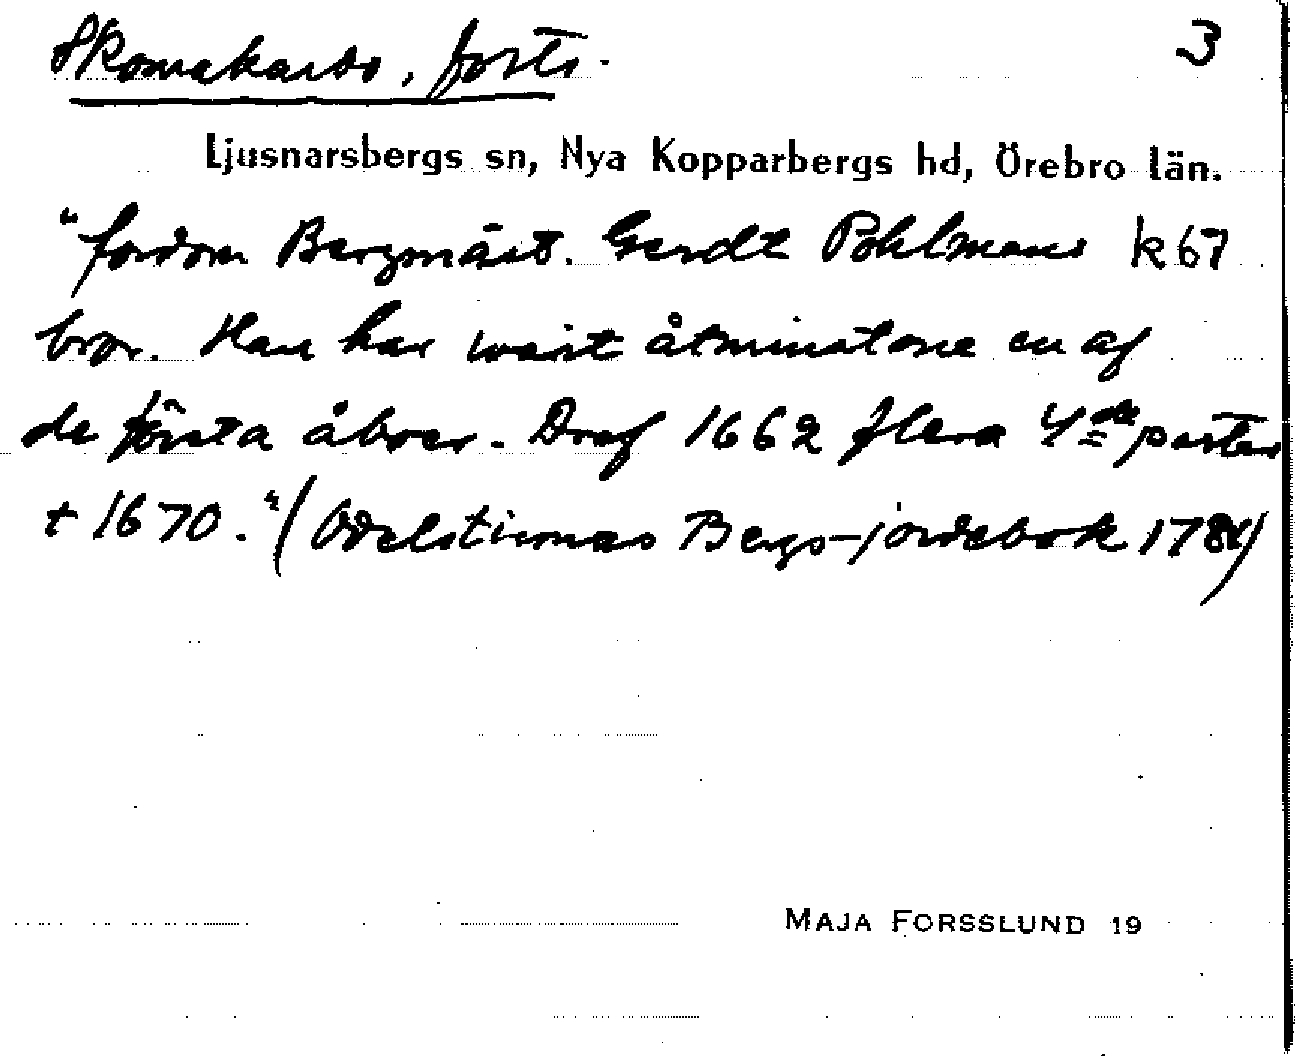 Skomakarbo, forts. 3
Ljusnarsbergs sn, Nya Kopparbergs hd, Örebro län.
"fordom Bergmäst. Gerdt Pohlmans k 67
bror. Han har warit åtminstone en af
de första åboer. Dref 1662 flera 4de parter
+ 1670." (Odelstiernas Bergs-jordebok 1784)
MAJA FORSSLUND 19